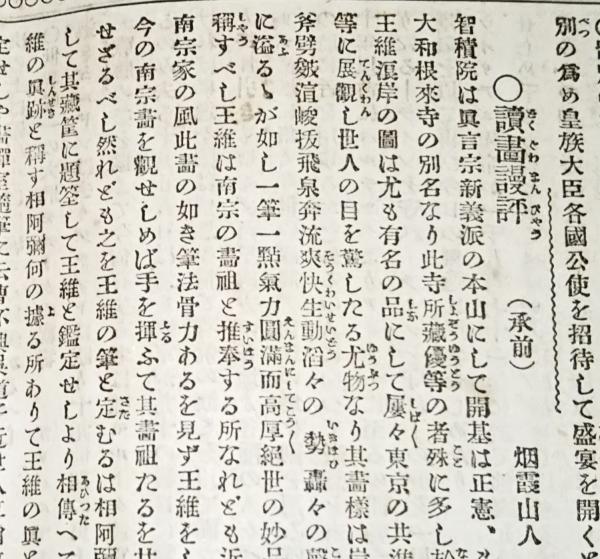 別の爲め皇族大臣各國公使を招待して盛宴を開く
○讀畫謾評（承前）　烟霞山人
智積院は眞言宗新義派の本山にして開基は正憲、
大和根來寺の別名なり此寺所藏優等の者殊に多し
王維浪岸の圖は尤も有名の品にして屢々東京の共進
等に展観し世人の目を驚したる尤物なり其畵樣は
斧劈皴渲峻拔飛泉奔流爽快生動滔々の勢轟々の
に溢るゝが如し一筆一點氣力圓滿而高厚絕世の妙品
稱すべし王維は南宗の畵祖と推奉する所なれども近
南宗家の風此畵の如き筆法骨力あるを見ず王維をし
今の南宗畵を觀せしめば手を揮ふて其畵祖たるを
せざるべし然れども之を王維の筆と定むるは相阿彌
して其藏筐に題簽して王維と鑑定せしより相傳へて
維の眞跡と稱す相阿彌何の據る所ありて王維の眞と
定せしや畵禪室隨筆に云